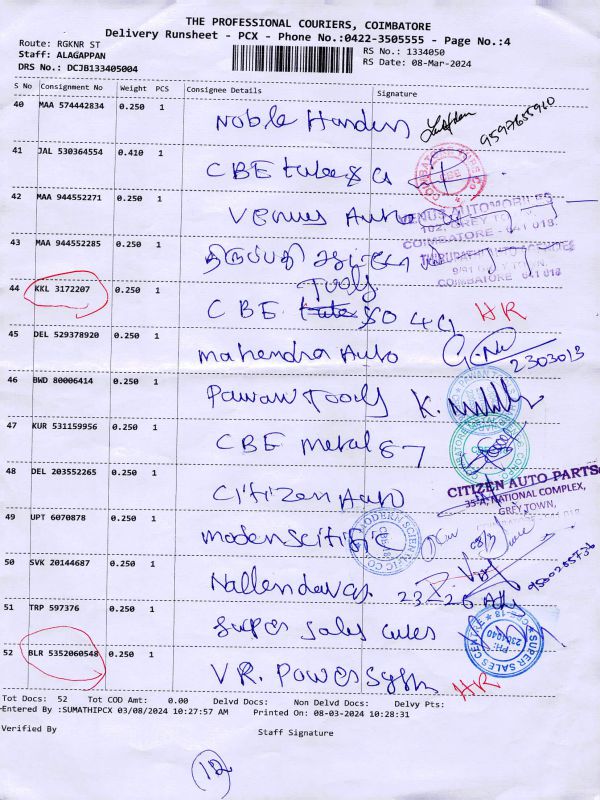 THE PROFESSIONAL COURIERS, COIMBATORE
Delivery Runsheet - PCX - Phone No.:0422-3505555 - Page No.:4
Route: RGKNR ST
RS No.: 1334050
Staff: ALAGAPPAN
RS Date: 08-Mar-2024
DRS No.: DCJB133405004
S No Consignment No Weight PCS Consignee Details Signature
40 MAA 574442834 0.250 1 Noble Handus 9597655910
41 JAL 530364554 0.410 1 CBE tubes
42 MAA 944552271 0.250 1 Venus Auto
VENUS AUTOMOBILES
102, GREY TOWN
COIMBATORE - 641 018.
43 MAA 944552285 0.250 1 திருப்பதி
COIMBATORE 641 018
44 KKL 3172207 0.250 1 CBE Tools HR
45 DEL 529378920 0.250 1 mahendra Auto 2303013
46 BWD 80006414 0.250 1 Pawan Tools
47 KUR 531159956 0.250 1 CBE metal
48 DEL 203552265 0.250 1 Citizen Auto
CITIZEN AUTO PARTS
35-A, NATIONAL COMPLEX,
GREY TOWN,
49 UPT 6070878 0.250 1 modern scitific 08/3
50 SVK 20144687 0.250 1 Nallendavar
51 TRP 597376 0.250 1 Super Sales
SUPER SALES CENTRE
52 BLR 5352060548 0.250 1 V.R. Power System HR
Tot Docs: 52 Tot COD Amt: 0.00 Delvd Docs: Non Delvd Docs: Delvy Pts:
Entered By :SUMATHIPCX 03/08/2024 10:27:57 AM Printed On: 08-03-2024 10:28:31
Verified By Staff Signature
12